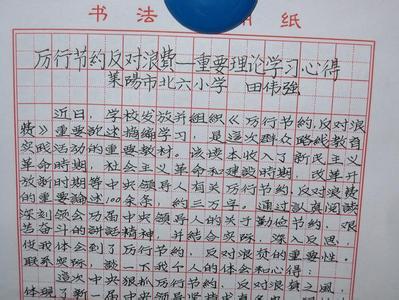 书法 用纸
厉行节约反对浪费—重要理论学习心得
莱阳市北六小学 田伟强
近日，学校发放并组织《厉行节约，反对浪
费》重要论述摘编学习，是这次群众路线教育
实践活动的重要教材。该读本收入了新民主主义
革命时期，社会主义革命和建设时期，改革开
放新时期等中央领导人有关厉行节约、反对浪费
的重要论述100余条，约三万字。通过认真阅读
深刻领会历届中央领导人的关于勤俭节约，艰
苦奋斗的讲话精神，并结合实际，深入反思，
使我体会到了厉行节约，反对浪费的重要性。
联系实际，谈一下我个人的体会和心得：
这次中央狠抓厉行节约、反对浪费之风
体现了新一届中央领导